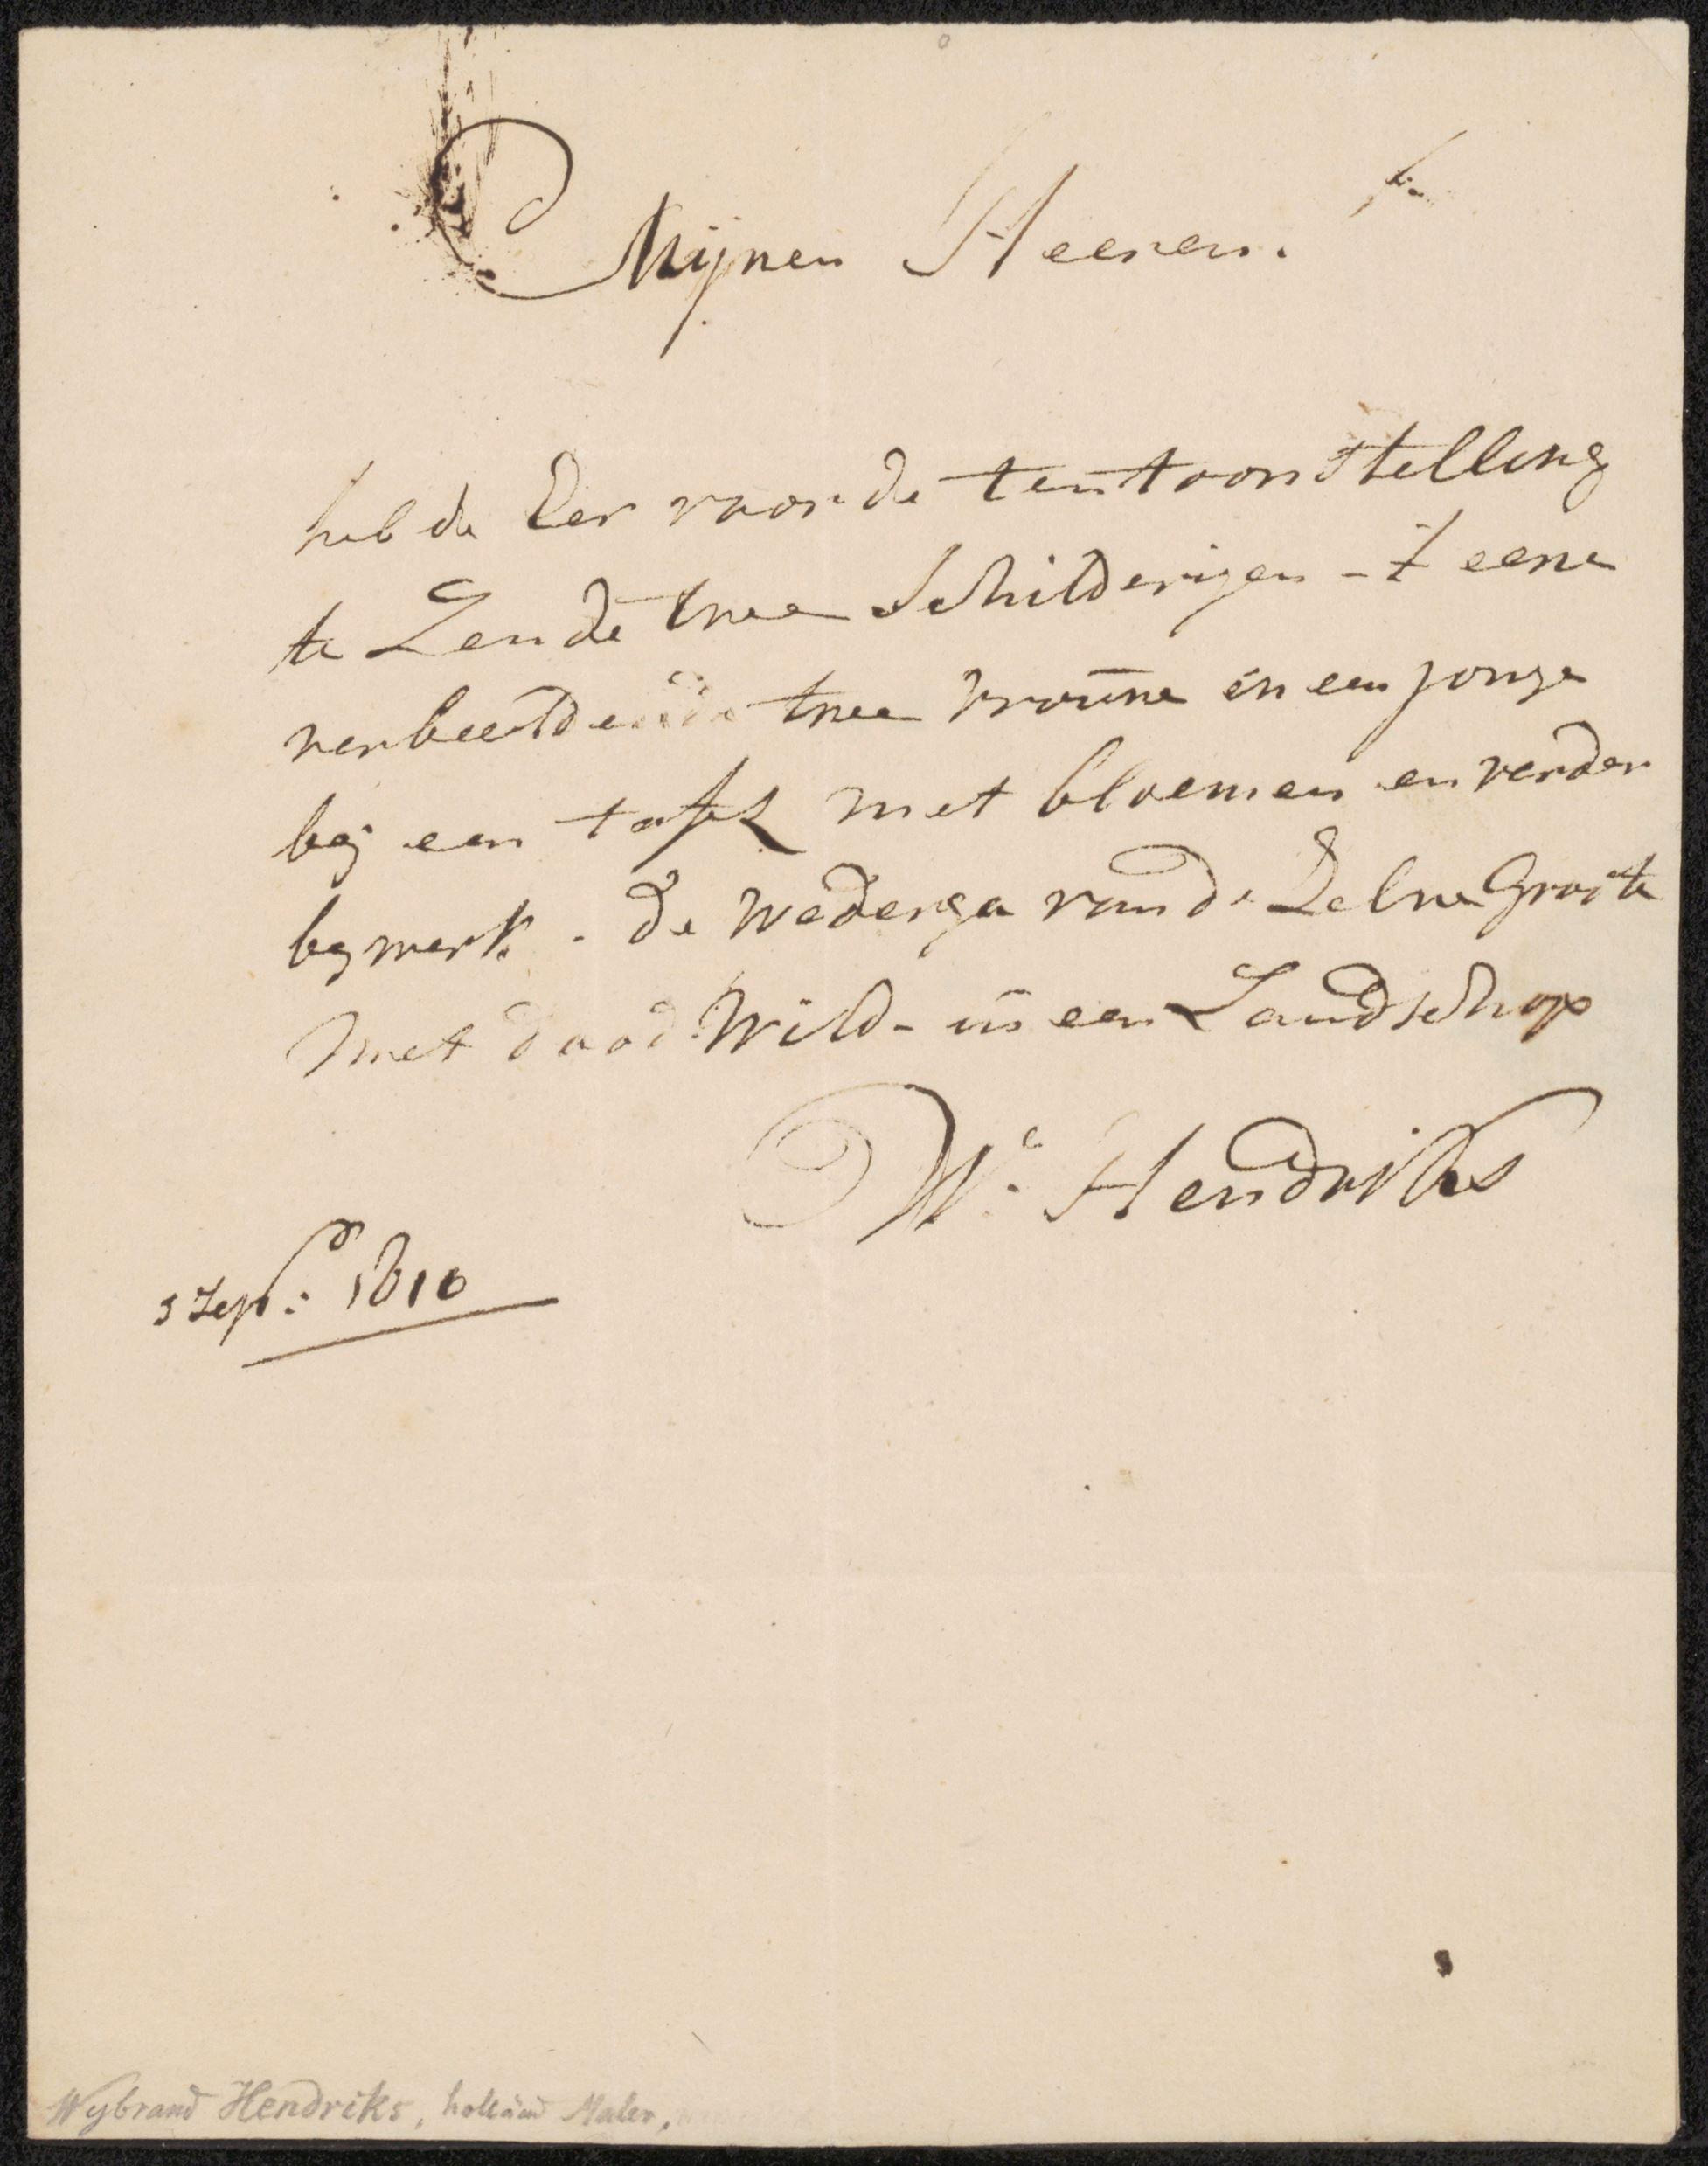 Mijnen Heeren.
heb de Eer voor de tentoonstelling
te Zende twee Schilderijen - t eene
verbeeldende twee vrouwe en een jonge
bij een tafel met bloemen en verder
bijwerk. de wederga van de Zelve Groote
met dood Wild - in een Landschap
W. Hendriks
5 Sepr: 1810
Wybrand Hendriks, holländ Maler.